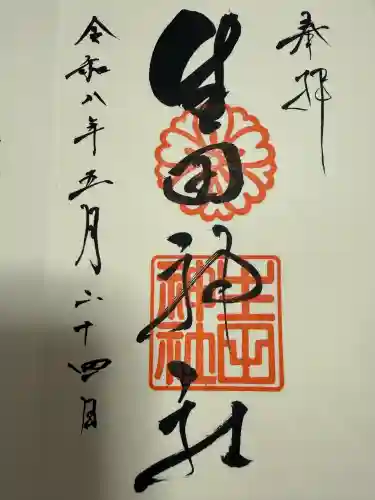 奉拝
生田神社
生田神社
令和八年五月二十四日